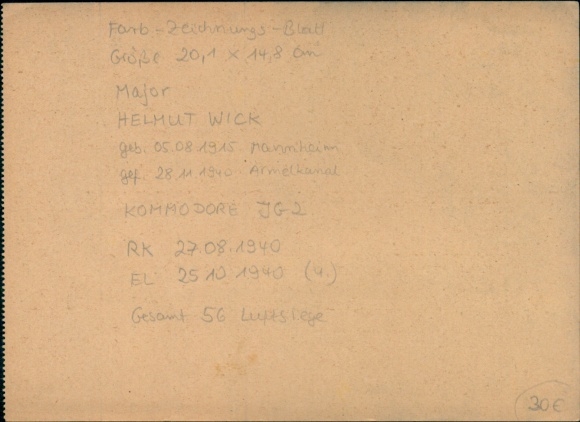 Farb-Zeichnungs-Blatt
Größe 20,1 x 14,8 cm
Major
HELMUT WICK
geb. 05.08.1915 Mannheim
gef. 28.11.1940 Ärmelkanal
KOMMODORE JG2
RK 27.08.1940
EL 25.10.1940 (4.)
Gesamt 56 Luftsiege
30€